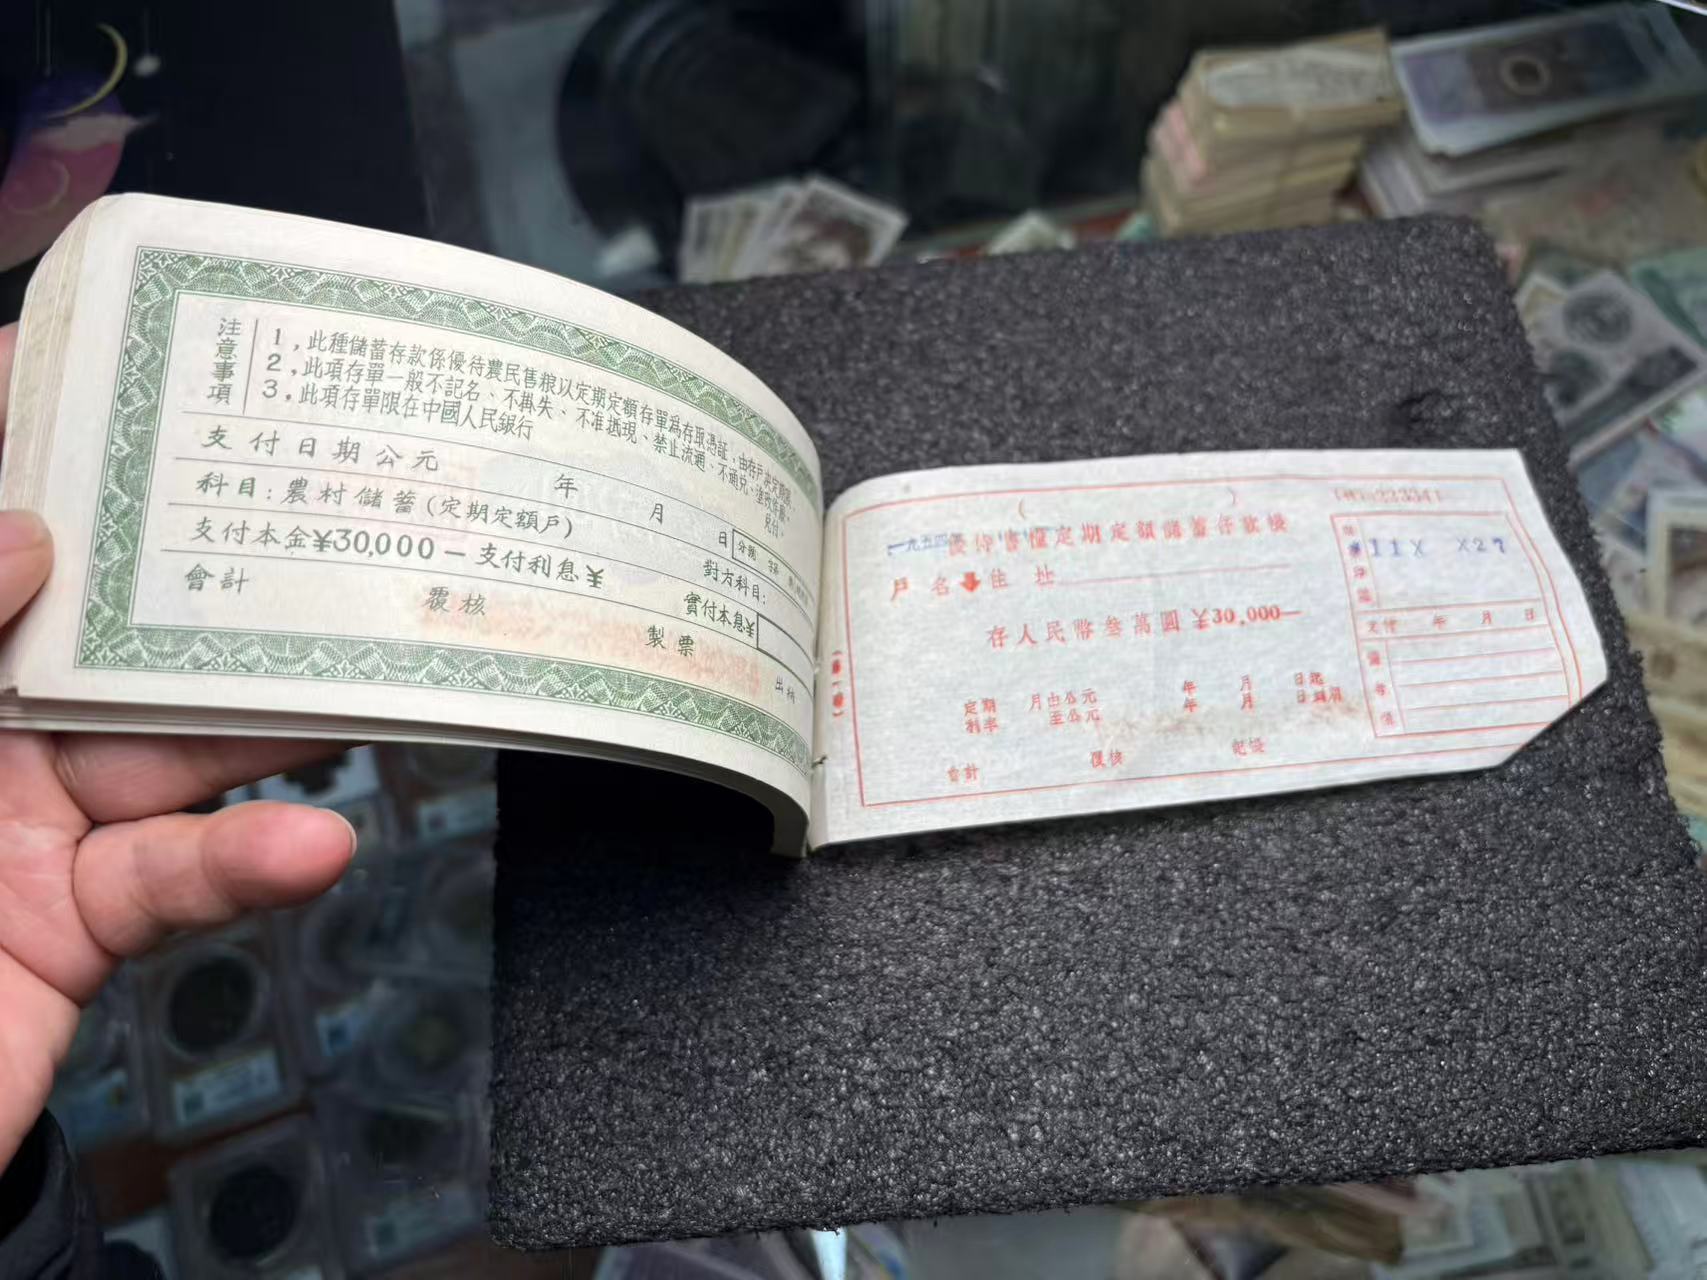 注意事項
1，此種儲蓄存款係優待農民售粮以定期定額存單為存取憑証，由存戶
2，此項存單一般不記名、不掛失、不准抵現、禁止流通、不通兌、塗改作廢。
3，此項存單限在中國人民銀行
兌付。
支付日期公元 年 月 日
科目：農村儲蓄（定期定額戶）
對方科目：
支付本金¥30,000－支付利息¥
實付本息¥
會計 覆核 製票 出納
一九五四年
優待售糧定期定額儲蓄存款
戶名 住址
存人民幣叁萬圓 ¥30,000－
定期 月由公元 年 月 日起
利率 至公元 年 月 日到期
會計 覆核 記
11X X27
支付 年 月 日
備考